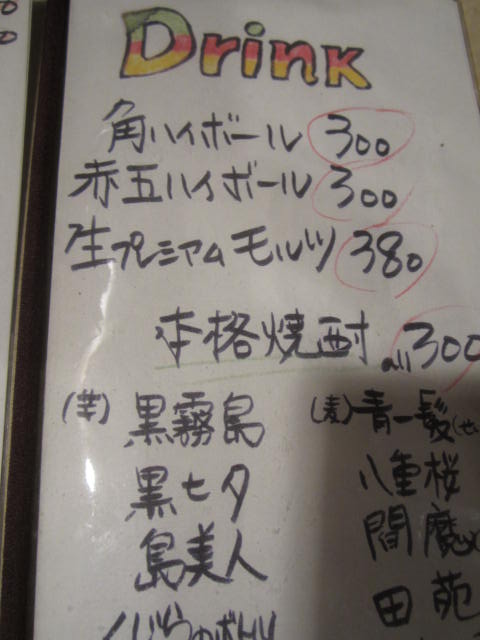 Drink
角ハイボール 300
赤玉ハイボール 300
生プレミアムモルツ 380
本格焼酎 all 300
(芋) 黒霧島
黒七夕
島美人
くじらのボトル
(麦) 青一髪(せ
八重桜
閻魔
田苑